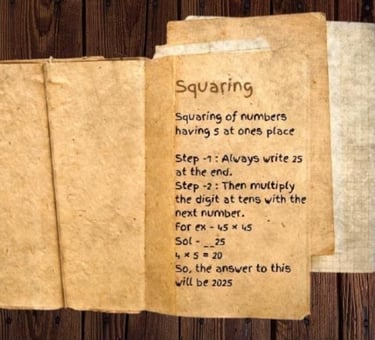 Squaring
Squaring of numbers
having 5 at ones place
Step -1 : Always write 25
at the end.
Step -2 : Then multiply
the digit at tens with the
next number.
For ex - 45 × 45
Sol - __25
4 × 5 = 20
So, the answer to this
will be 2025